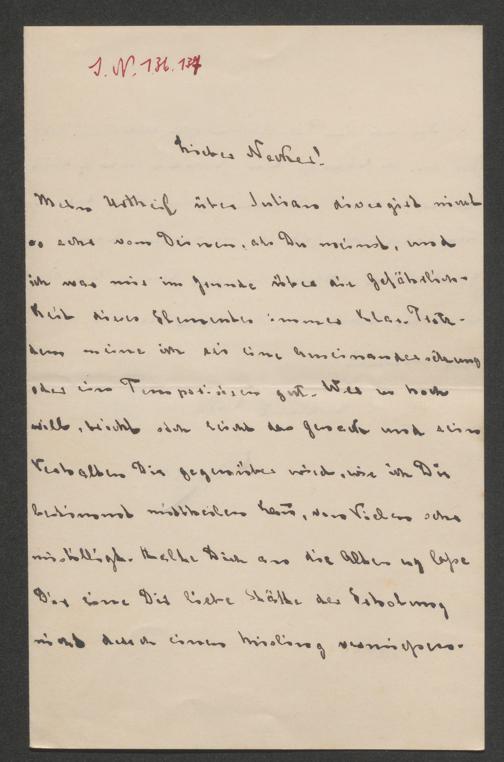 I. N. 136.134
Lieber Necker!
Mein Urtheil über Julian divergirt nicht
so sehr vom Deinen, als Du meinst, und
ich war mir im Grunde über die Gefährlich-
keit dieses Elementes immer klar. Trotz-
dem meine ich sei eine Auseinandersetzung
oder ein Temporisiren gut. Wer so hoch
will, bricht sich leicht das Genick und sein
Verhalten Dir gegenüber wird, wie ich Dir
bestimmt mittheilen kann, von Vielen sehr
mißbilligt. Halte Dich an die Alten u. lasse
Dir eine Dir liebe Stätte der Erholung
nicht durch einen verniesen-